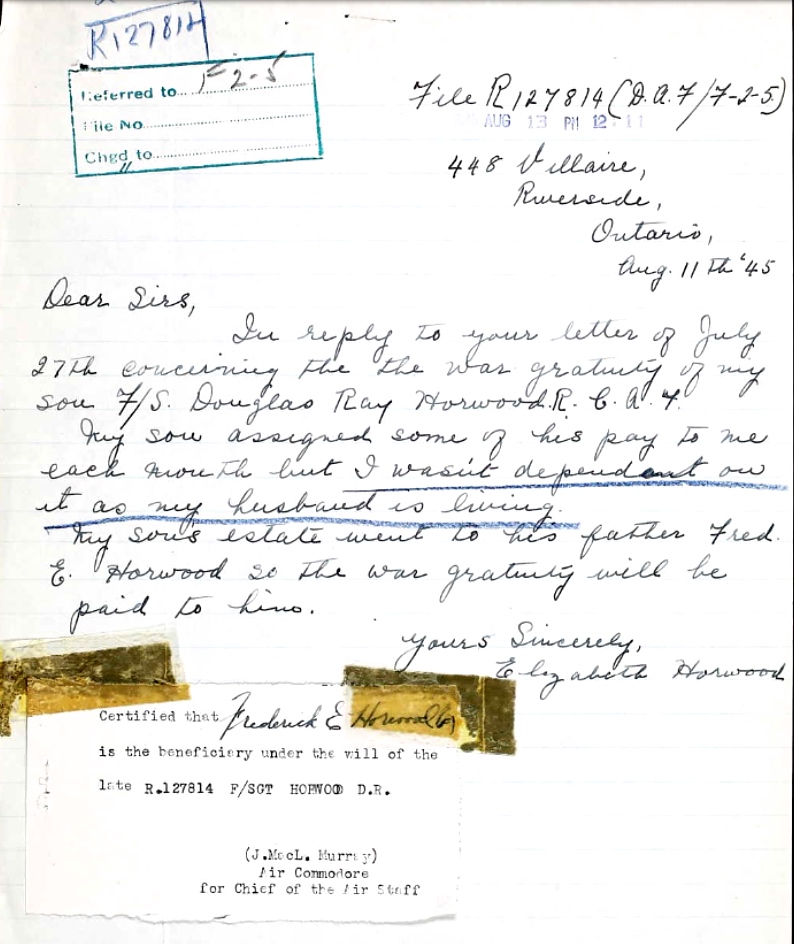 R127814
Referred to F 2-5
File No.
Chgd to
"
File R127814 (D.A.F/7-2-5)
AUG 13 PM 12 11
448 Villaire,
Riverside,
Ontario,
Aug. 11th '45
Dear Sirs,
In reply to your letter of July
27th concerning the the war gratuity of my
son F/S. Douglas Ray Horwood. R. C. A. F.
My son assigned some of his pay to me
each month but I wasn't dependant on
it as my husband is living.
My son's estate went to his father Fred.
E. Horwood so the war gratuity will be
paid to him.
Yours Sincerely,
Elizabeth Horwood
Certified that Frederick E Horwood
is the beneficiary under the will of the
late R.127814 F/SGT HORWOOD D.R.
(J.MacL. Murray)
Air Commodore
for Chief of the Air Staff